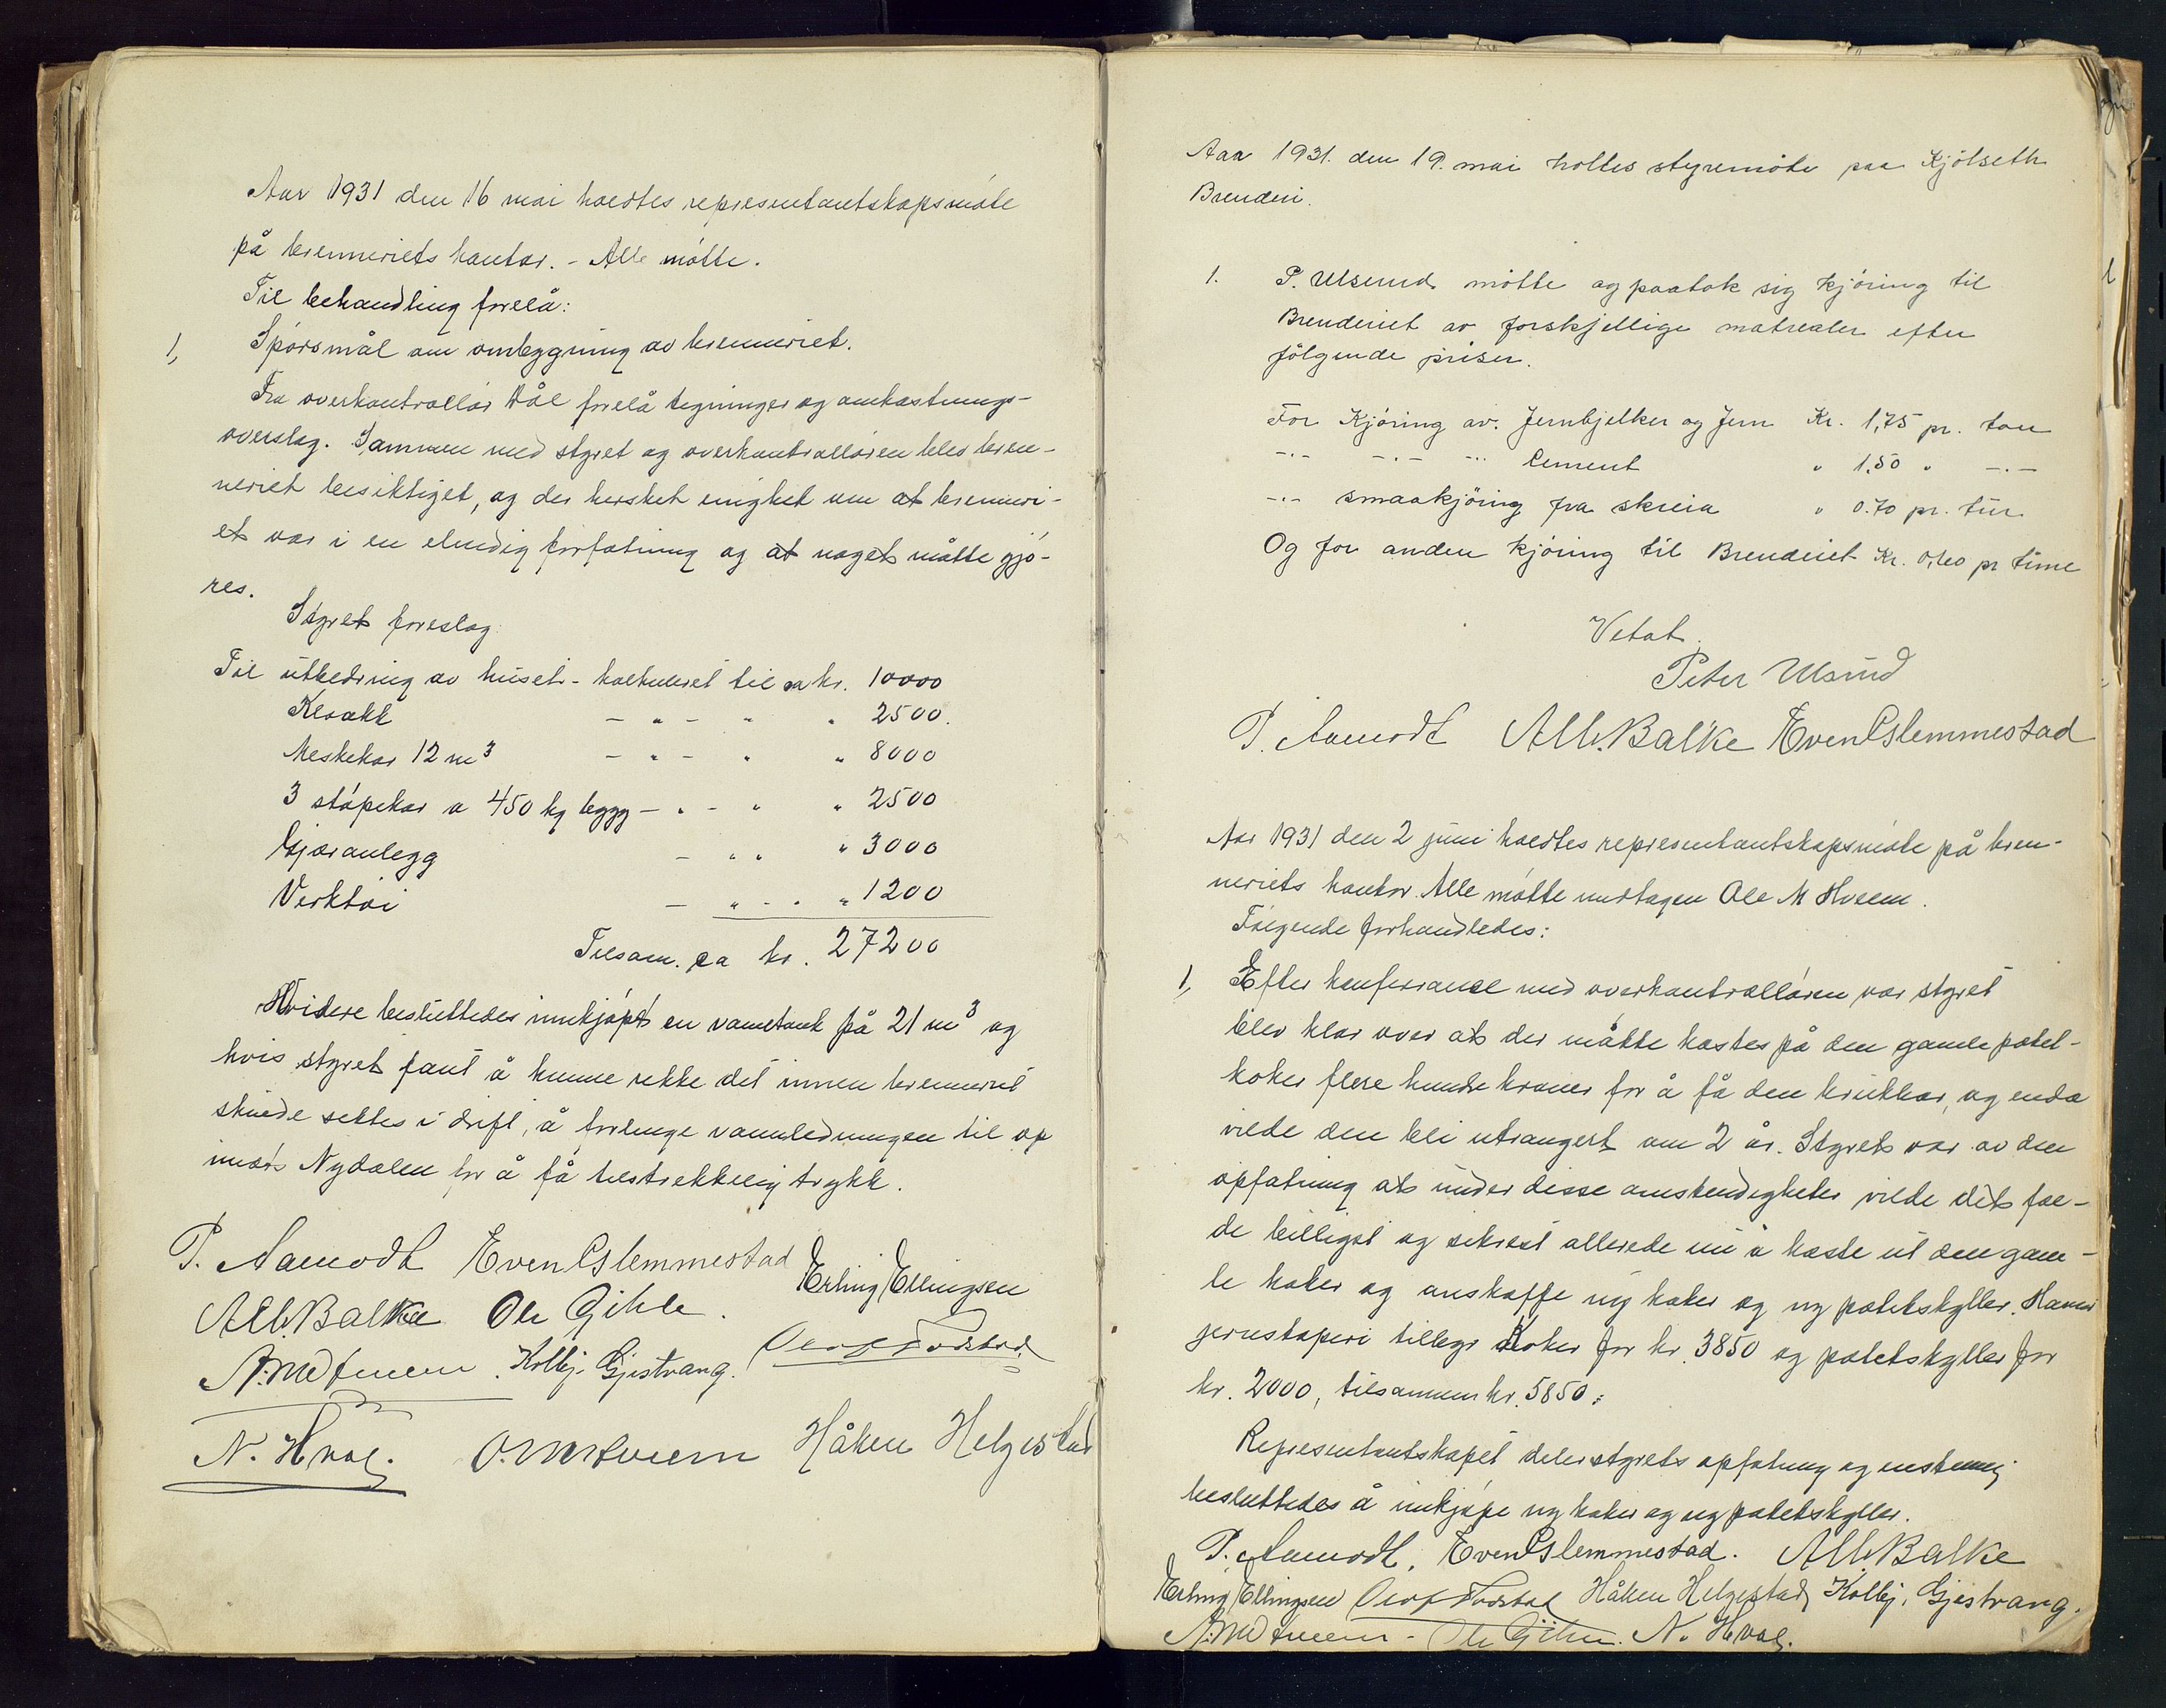 Aar 1931 den 16 mai holdtes representantskapsmöte
på brenneriets kontor. - Alle mötte.
Til behandling forelå:
1, Spörsmål om ombygging av brenneriet.
Fra overkontrollör Dål forelå tegninger og omkostnings-
overslag. Sammen med styret og overkontrollören blev bren-
neriet besiktiget, og der hersket enighet om at brenneri-
et var i en elendig forfatning og at noget måtte gjö-
res.
Styret foreslog:
Til utbedring av huset - kalkulert til ca kr. 10000
Kloakk - " - " " 2500.
Meskekar 12 m³ - " - " " 8000
3 stöpekar a 450 kg bygg - " - " " 2500
Gjæranlegg - " " " 3000
Verktöi - " - " " 1200
Tilsam. ca kr. 27200
Videre besluttedes innkjöpt en vanntank på 21 m³ og
hvis styret fant å kunne rekke det innen brenneriet
skulde settes i drift, å forlenge vannledningen til op
imot Nydalen for å få tilstrekkelig trykk.
P. Aamodt Even Gslemmestad Erling Ellingsen
Alb. Balke Ole Gihle.
Kolbj. Gjestvang.
N. Hval. O. M. Hveem Håken Helgestad
Aar 1931. den 19. mai holtes styremöte paa Kjölseth
Brenderi.
1. P. Ulsund mötte og paatok sig kjöring til
Brenderiet av forskjellige matrealer efter
fölgende priser.
For Kjöring av. Jernbjelker og Jern Kr. 1,75 pr. ton
-"- -"- -"- Cement " 1,50 " -"-
-"- smaakjöring fra skreia " 0.70 pr. tur.
Og for anden kjöring til Brenderiet Kr. 0,60 pr time
Vetat.
Peter Ulsund
P. Aamodt Alb. Balke Even Gslemmestad
Aar 1931 den 2 juni holdtes representantskapsmöte på bren-
neriets kontor. Alle mötte undtagen Ole M Hveem.
Fölgende forhandledes:
1, Efter konferranse med overkontrollören var styret
blev klar over at der måtte kostes på den gamle potet-
koker flere hundre kroner for å få den brukbar, og enda
vilde den bli utrangert om 2 år. Styret var av den
opfatning at under disse omstendigheter vilde det fal-
de billigst og sikrest allerede nu å kaste ut den gam-
le koker og anskaffe ny koker og ny potetskyller. Hamar
jernstöperi tillegr koker for kr. 3850 og potetskyller for
kr. 2000, tilsammen kr. 5850,-
Representantskapet deler styrets opfatning og enstemmig
besluttedes å innkjöpe ny koker og ny potetskyller.
P. Aamodt, Even Gslemmestad. Alb. Balke
Erling Ellingsen Håken Helgestad, Kolbj. Gjestvang.
Ole Gihle. N. Hval.